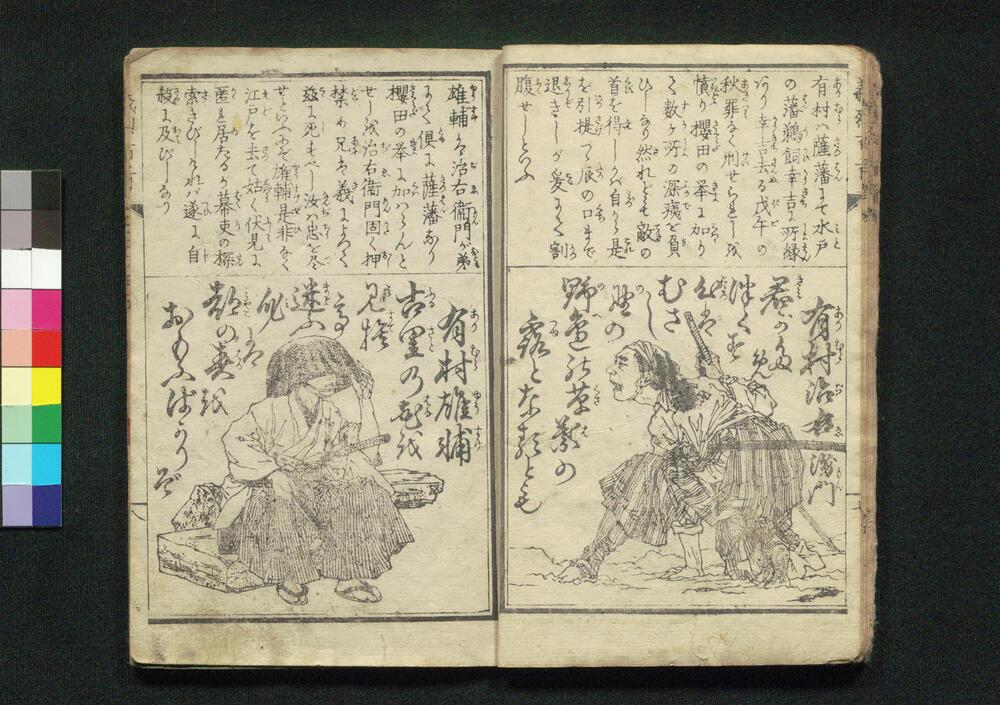 有村ハ薩藩にて水戸
の藩鵜飼幸吉に所縁
あり幸吉去る戊午の
秋罪なく刑せらるしを
憤り櫻田の挙に加り
て数ヶ所の深痍を負
ひしなり然れども敵の
首を得しかバ自ら是
を引提て辰の口まで
退きしが爰にて割
腹せしとふ
有村治右衛門
君が為
つくす
むさし
野の
野邉の草葉の
露となるとも
雄輔ハ治右衛門が弟
にて倶に薩藩なり
櫻田の挙に加ハらんと
せしを治右衛門固く押
禁め兄ハ義によつて
茲に死すべし汝ハ忠を尽
せといふにぞ雄輔是非なく
江戸を去て姑く伏見に
匿れ居たるが幕吏の探
索きびしければ遂に自
殺に及びしなり
有村雄輔
古里の花を
見捨て
迷ふ
都の
おもふばかりぞ